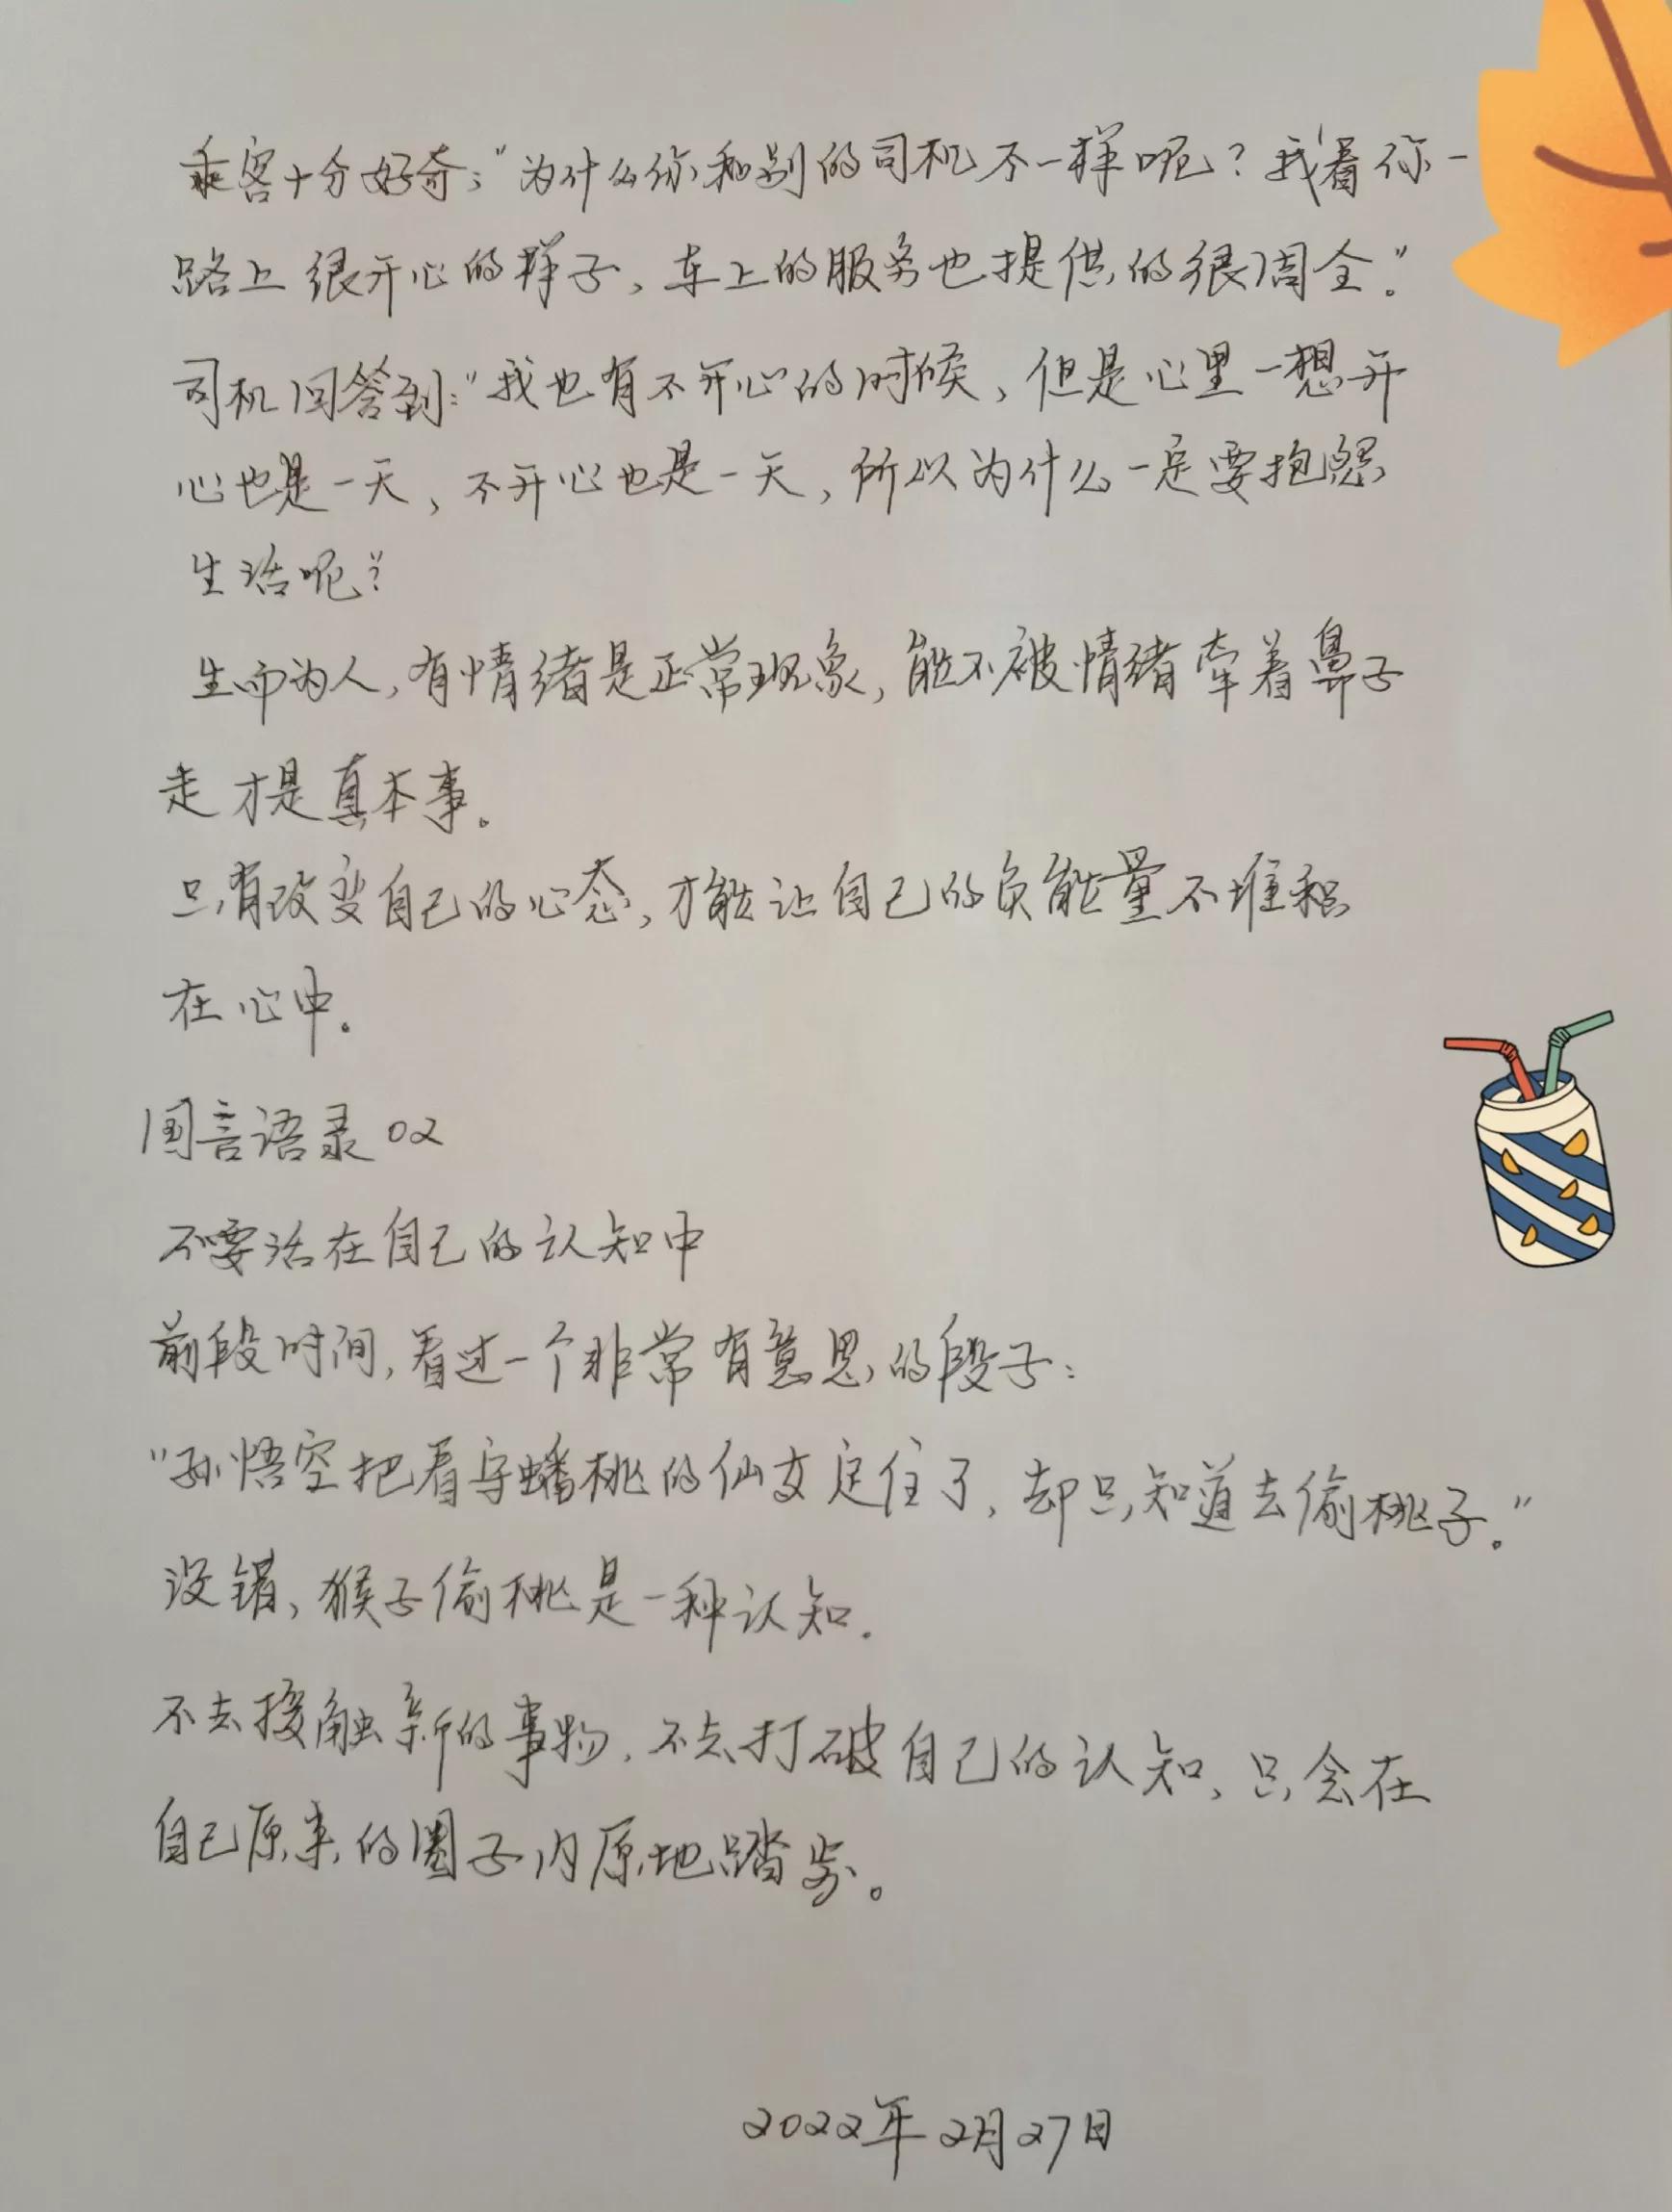 乘客十分好奇:“为什么你和别的司机不一样呢?我看你一
路上很开心的样子,车上的服务也提供的很周全。”
司机回答到:“我也有不开心的时候,但是心里一想开
心也是一天,不开心也是一天,所以为什么一定要抱怨
生活呢?”
生而为人,有情绪是正常现象,能不被情绪牵着鼻子
走才是真本事。
只有改变自己的心态,才能让自己的负能量不堆积
在心中。
国言语录02
不要活在自己的认知中
前段时间,看过一个非常有意思的段子:
“孙悟空把看守蟠桃的仙女定住了,却只知道去偷桃子。”
没错,猴子偷桃是一种认知.
不去接触新的事物,不去打破自己的认知,只会在
自己原来的圈子内原地踏步。
2022年2月27日